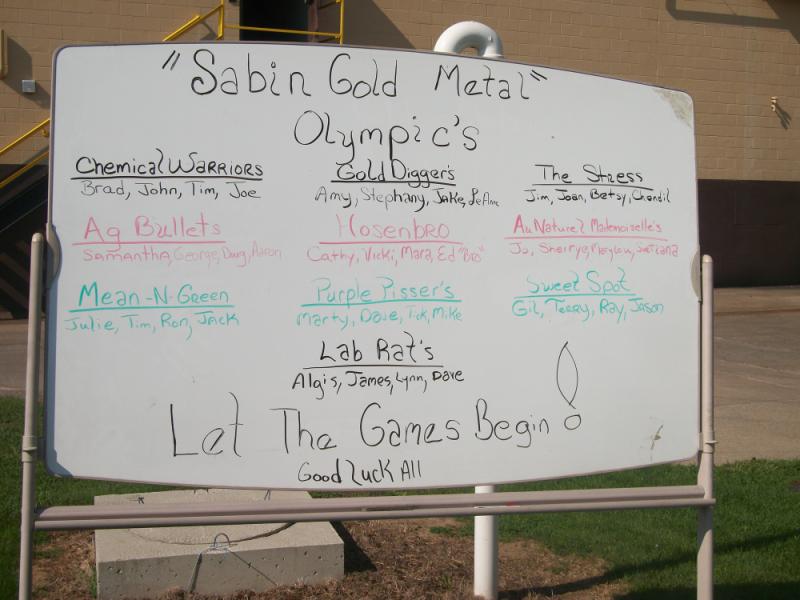 "Sabin Gold Metal"
Olympic's
Chemical Warriors Gold Digger's The Stress
Brad, John, Tim, Joe Amy, Stephany, Jake, LeAnn Jim, Joan, Betsy, Chandil
Ag Bullets Hosenbro Au Naturel Mademoiselle's
Samantha, George, Doug, Aaron Cathy, Vicki, Mara, Ed "Bro" Jo, Sherrye,
Mean-N-Green Purple Pisser's Sweet Spot
Julie, Tim, Ron, Jack Marty, Dave, Mike Gil, Terry, Ray, Jason
Lab Rat's
Algis, James, Lynn, Dave
Let The Games Begin!
Good Luck All